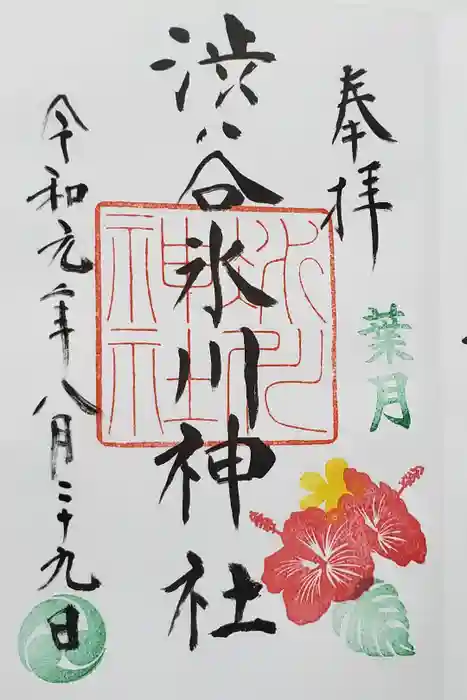 奉拝
葉月
渋谷氷川神社
令和元年八月二十九日